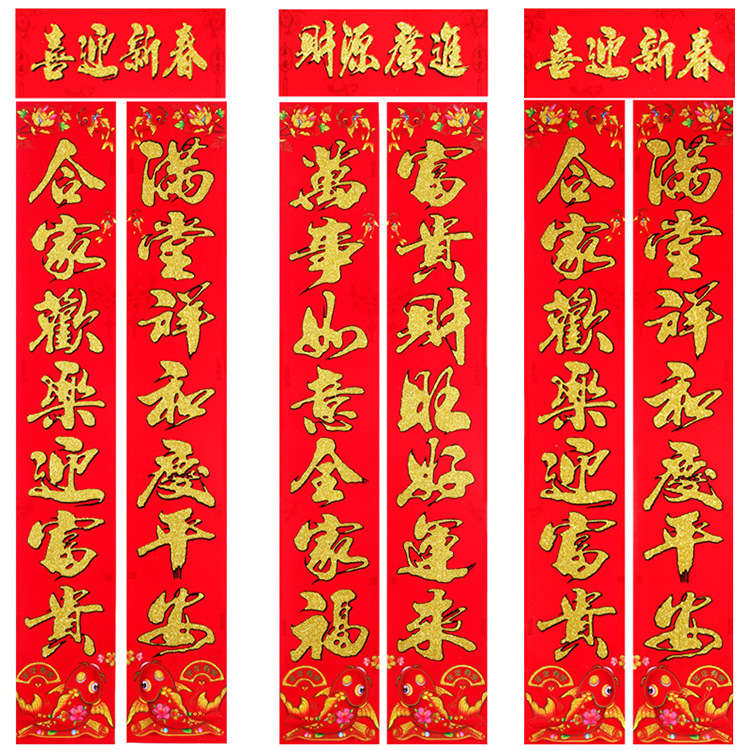 喜迎新春
合家歡樂迎富貴
满堂祥和慶平安
財源廣進
萬事如意全家福
富貴財旺好運来
喜迎新春
合家歡樂迎富貴
满堂祥和慶平安